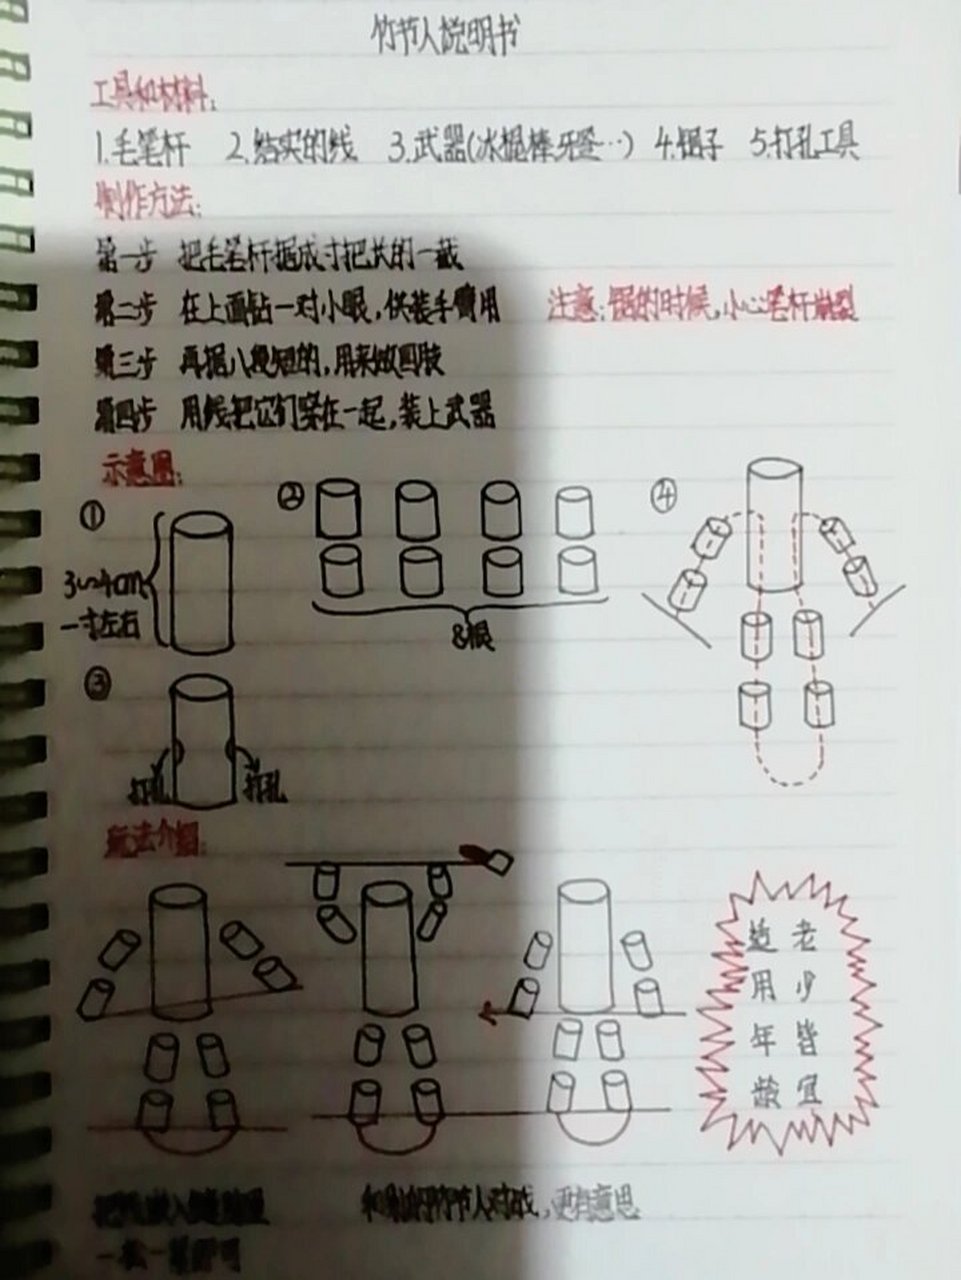 竹节人说明书
工具和材料:
1.毛笔杆 2.结实的线 3.武器(冰棍棒,牙签…) 4.锯子 5.打孔工具
制作方法:
第一步 把毛笔杆锯成寸把长的一截
第二步 在上面钻一对小眼,供装手臂用 注意:锯的时候,小心笔杆崩裂
第三步 再锯八段短的,用来做四肢
第四步 用线把它们穿在一起,装上武器
示意图:
①
3~4cm
一寸左右
②
8根
③
打孔 打孔
④
玩法介绍:
适 老
用 少
年 皆
龄 宜
把线嵌入缝隙里
一松一紧即可
和别的竹节人对战,更有意思